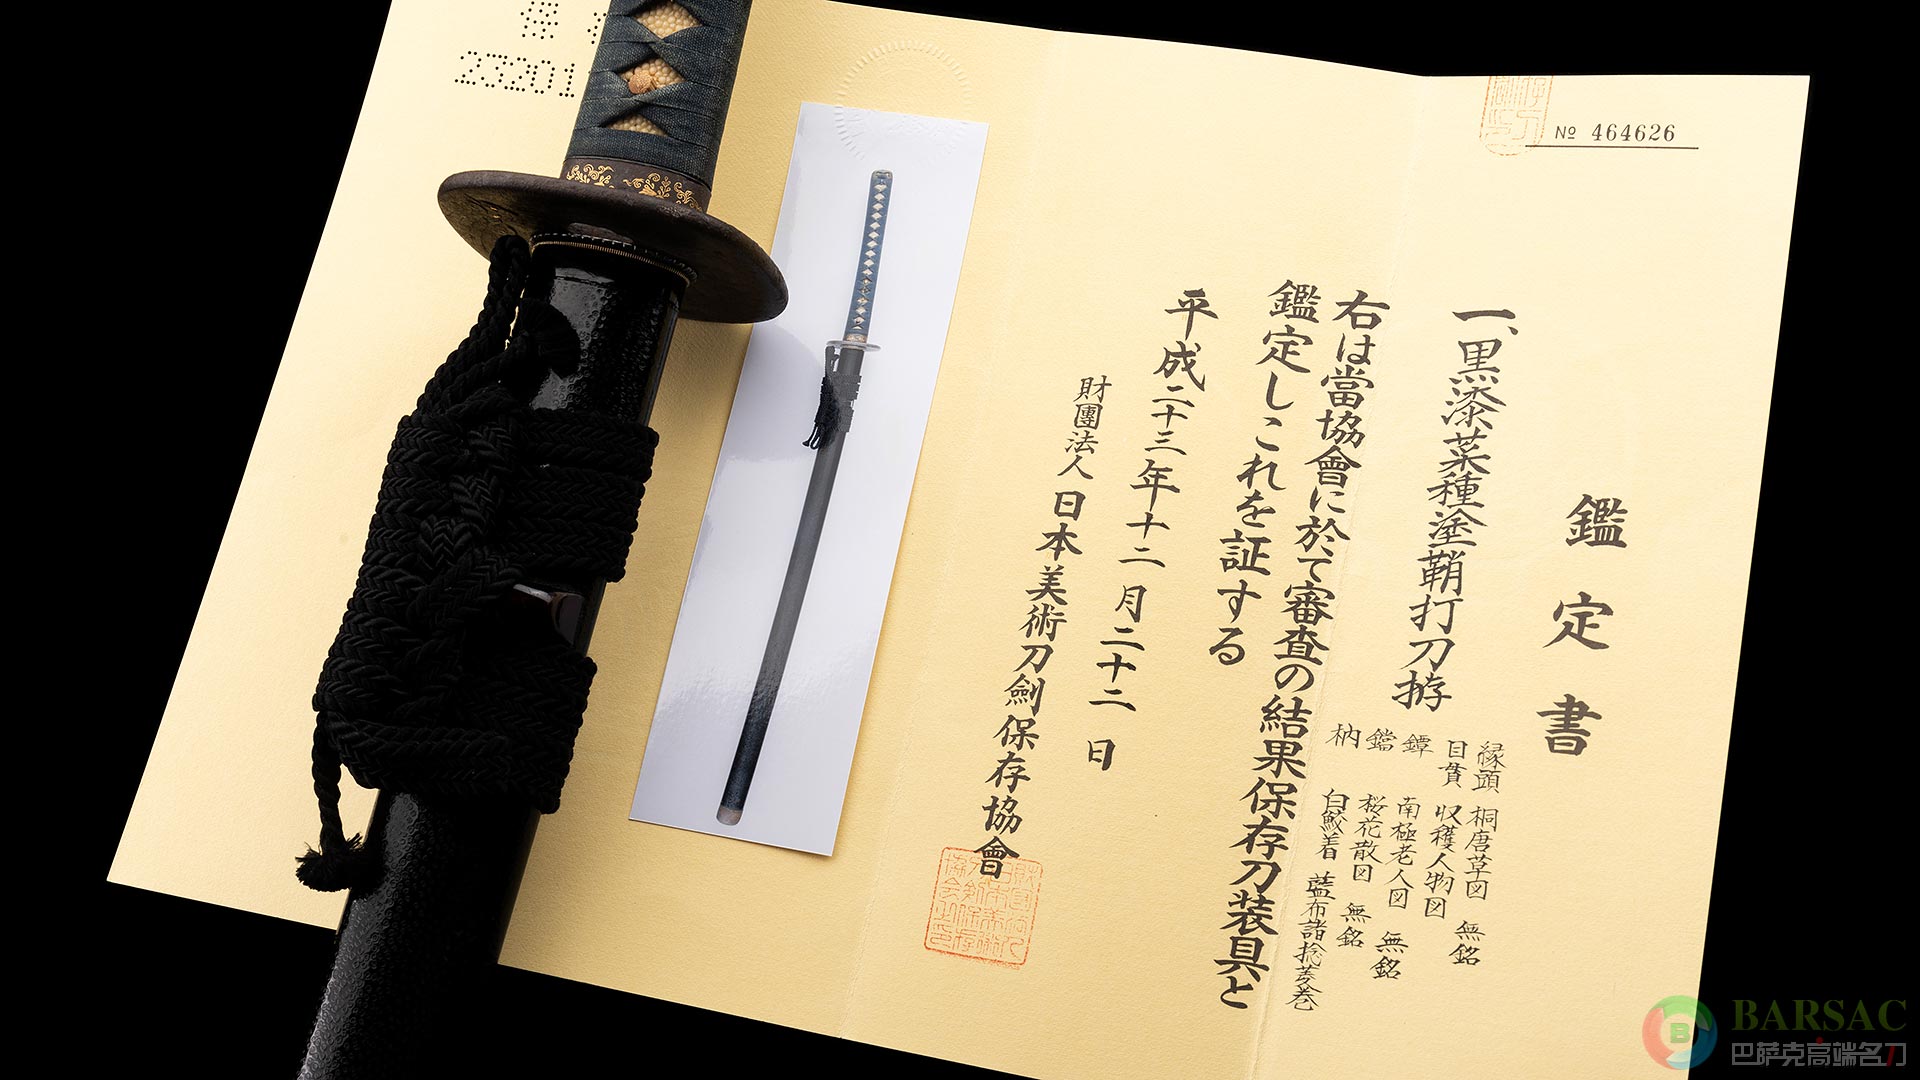 № 464626
鑑定書
一、黒漆菜種塗鞘打刀拵
縁頭 桐唐草図 無銘
目貫 収穫人物図
鐔 南極老人図 無銘
鐺 桜花散図 無銘
柄 白鮫着 藍布諸捻菱巻
右は當協會に於て審査の結果保存刀装具と
鑑定しこれを証する
平成二十三年十二月二十二日
財團法人日本美術刀劍保存協會
23201
BARSAC
巴萨克高端名刀